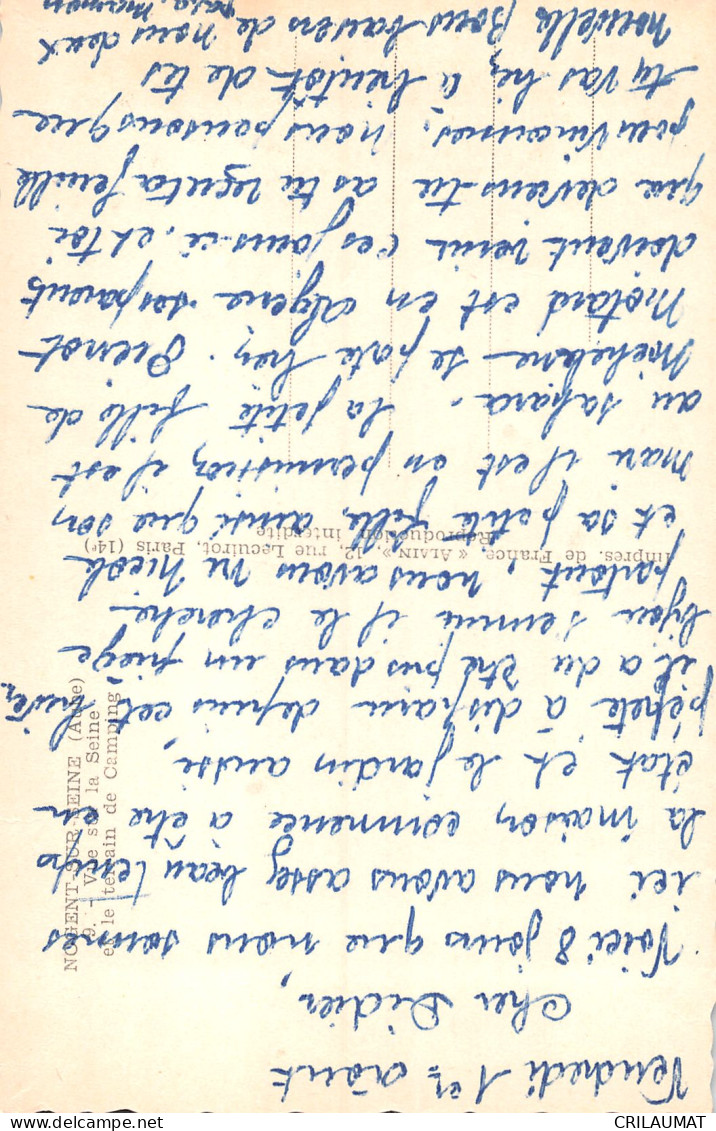 Vendredi 1er août
Cher Didier,
Voici 8 jours que nous sommes
ici nous avons assez beau temps
la maison commence à être en
état et le jardin aussi,
pépète à disparu depuis cet hiver
il a du être pris dans un piège
bijou s'ennui il le cherche
partout, nous avons vu Nicole
et sa petite fille, ainsi que son
mari il est en permission, il est
au sahara. La petite fille de
Michelane se porte bien. Pienot
Miotard est en Algerie ses parents
doivent venir ces jours-ci. et toi
que deviens-tu as tu reçu ta feuille
pour Vincennes, nous pensons que
tu vas bien, à bientôt de tes
nouvelles Bons baisers de nous deux
papa, maman
NOGENT-SUR-SEINE (Aube)
9. - Vue sur la Seine
et le terrain de Camping
Impres. de France, « ALAIN », 12, rue Lecuirot, Paris (14e)
Reproduction interdite
CRILAUMAT